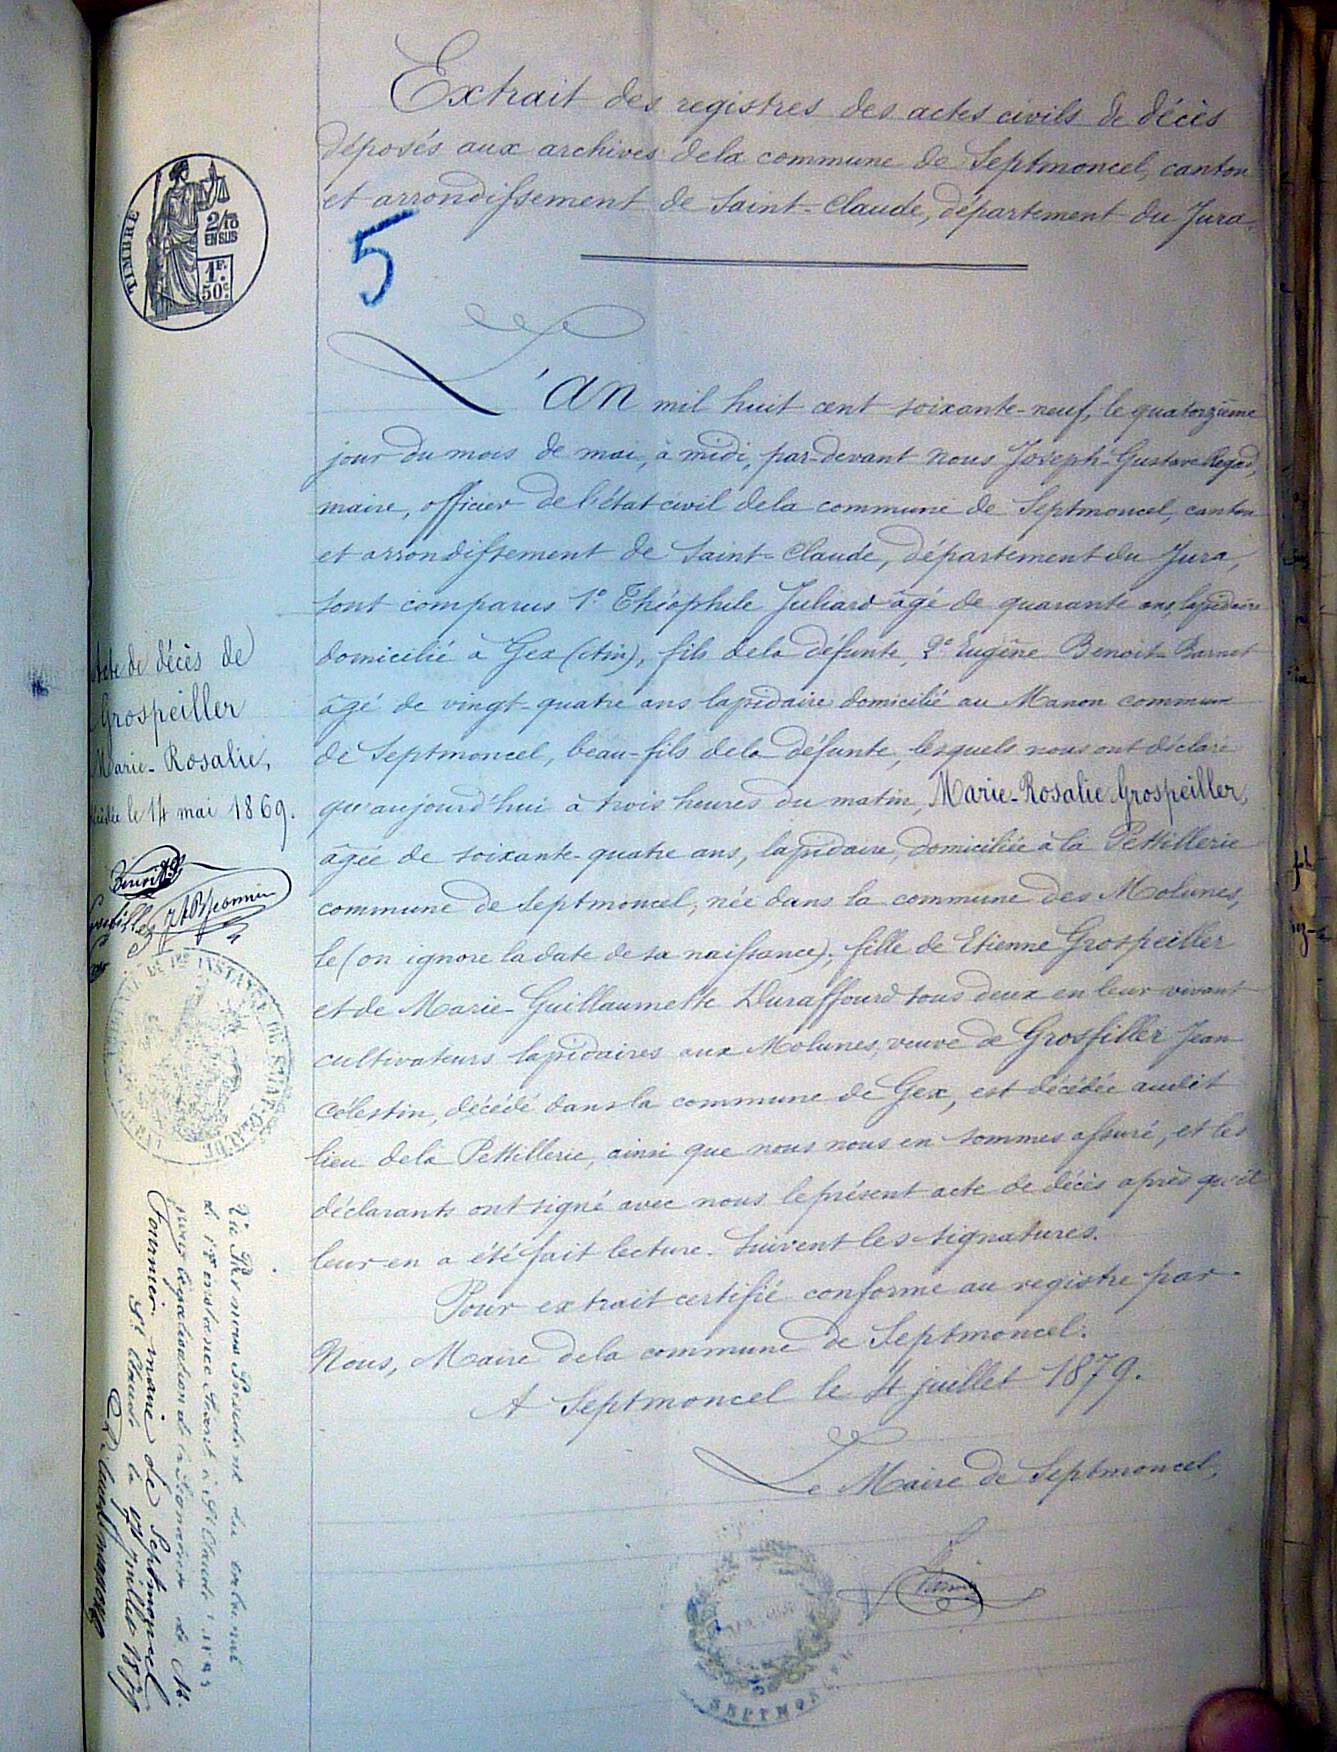 Extrait des registres des actes civils de décès
déposés aux archives dela commune de Septmoncel, canton
et arrondissement de Saint-Claude, département du Jura
TIMBRE
2/10
EN SUS
1F.
50c.
5
L'an mil huit cent soixante-neuf, le quatorzième
jour du mois de mai, à midi, par-devant nous Joseph-Gustave Regad,
maire, officier de l'état civil dela commune de Septmoncel, canton
et arrondissement de Saint-Claude, département du Jura,
sont comparus 1º Théophile Juliard âgé de quarante ans, lapidaire
domicilié à Gex (Ain), fils dela défunte, 2º Eugène Benoit-Barnet
âgé de vingt-quatre ans lapidaire domicilié au Manon commune
de Septmoncel, beau-fils dela défunte, lesquels nous ont déclaré
qu'aujourd'hui à trois heures du matin, Marie-Rosalie Grospeiller,
âgée de soixante-quatre ans, lapidaire, domiciliée à la Pettillerie
commune de Septmoncel, née dans la commune des Molunes,
le (on ignore la date de sa naissance), fille de Etienne Grospeiller
et de Marie-Guillaumette Duraffourd tous deux en leur vivant
cultivateurs lapidaires aux Molunes, veuve de Grosfiller Jean
Célestin, décédé dans la commune de Gex, est décédée audit
lieu dela Pettillerie, ainsi que nous nous en sommes assuré, et les
déclarants ont signé avec nous le présent acte de décès après qu'il
leur en a été fait lecture. Suivent les signatures.
Pour extrait certifié conforme au registre par
Nous, Maire dela commune de Septmoncel.
A Septmoncel le 4 juillet 1879.
Le Maire de Septmoncel,
SEPTMONCEL
Acte de décès de
Grospeiller
Marie-Rosalie,
décédée le 14 mai 1869.
Benoit
DE 1re INSTANCE DE SAINT-CLAUDE
Vu Par nous Président du tribunal
de 1re instance séant à St Claude
pour légalisation de la signature de M.
Fournier maire de Septmoncel
St Claude le juillet 1879